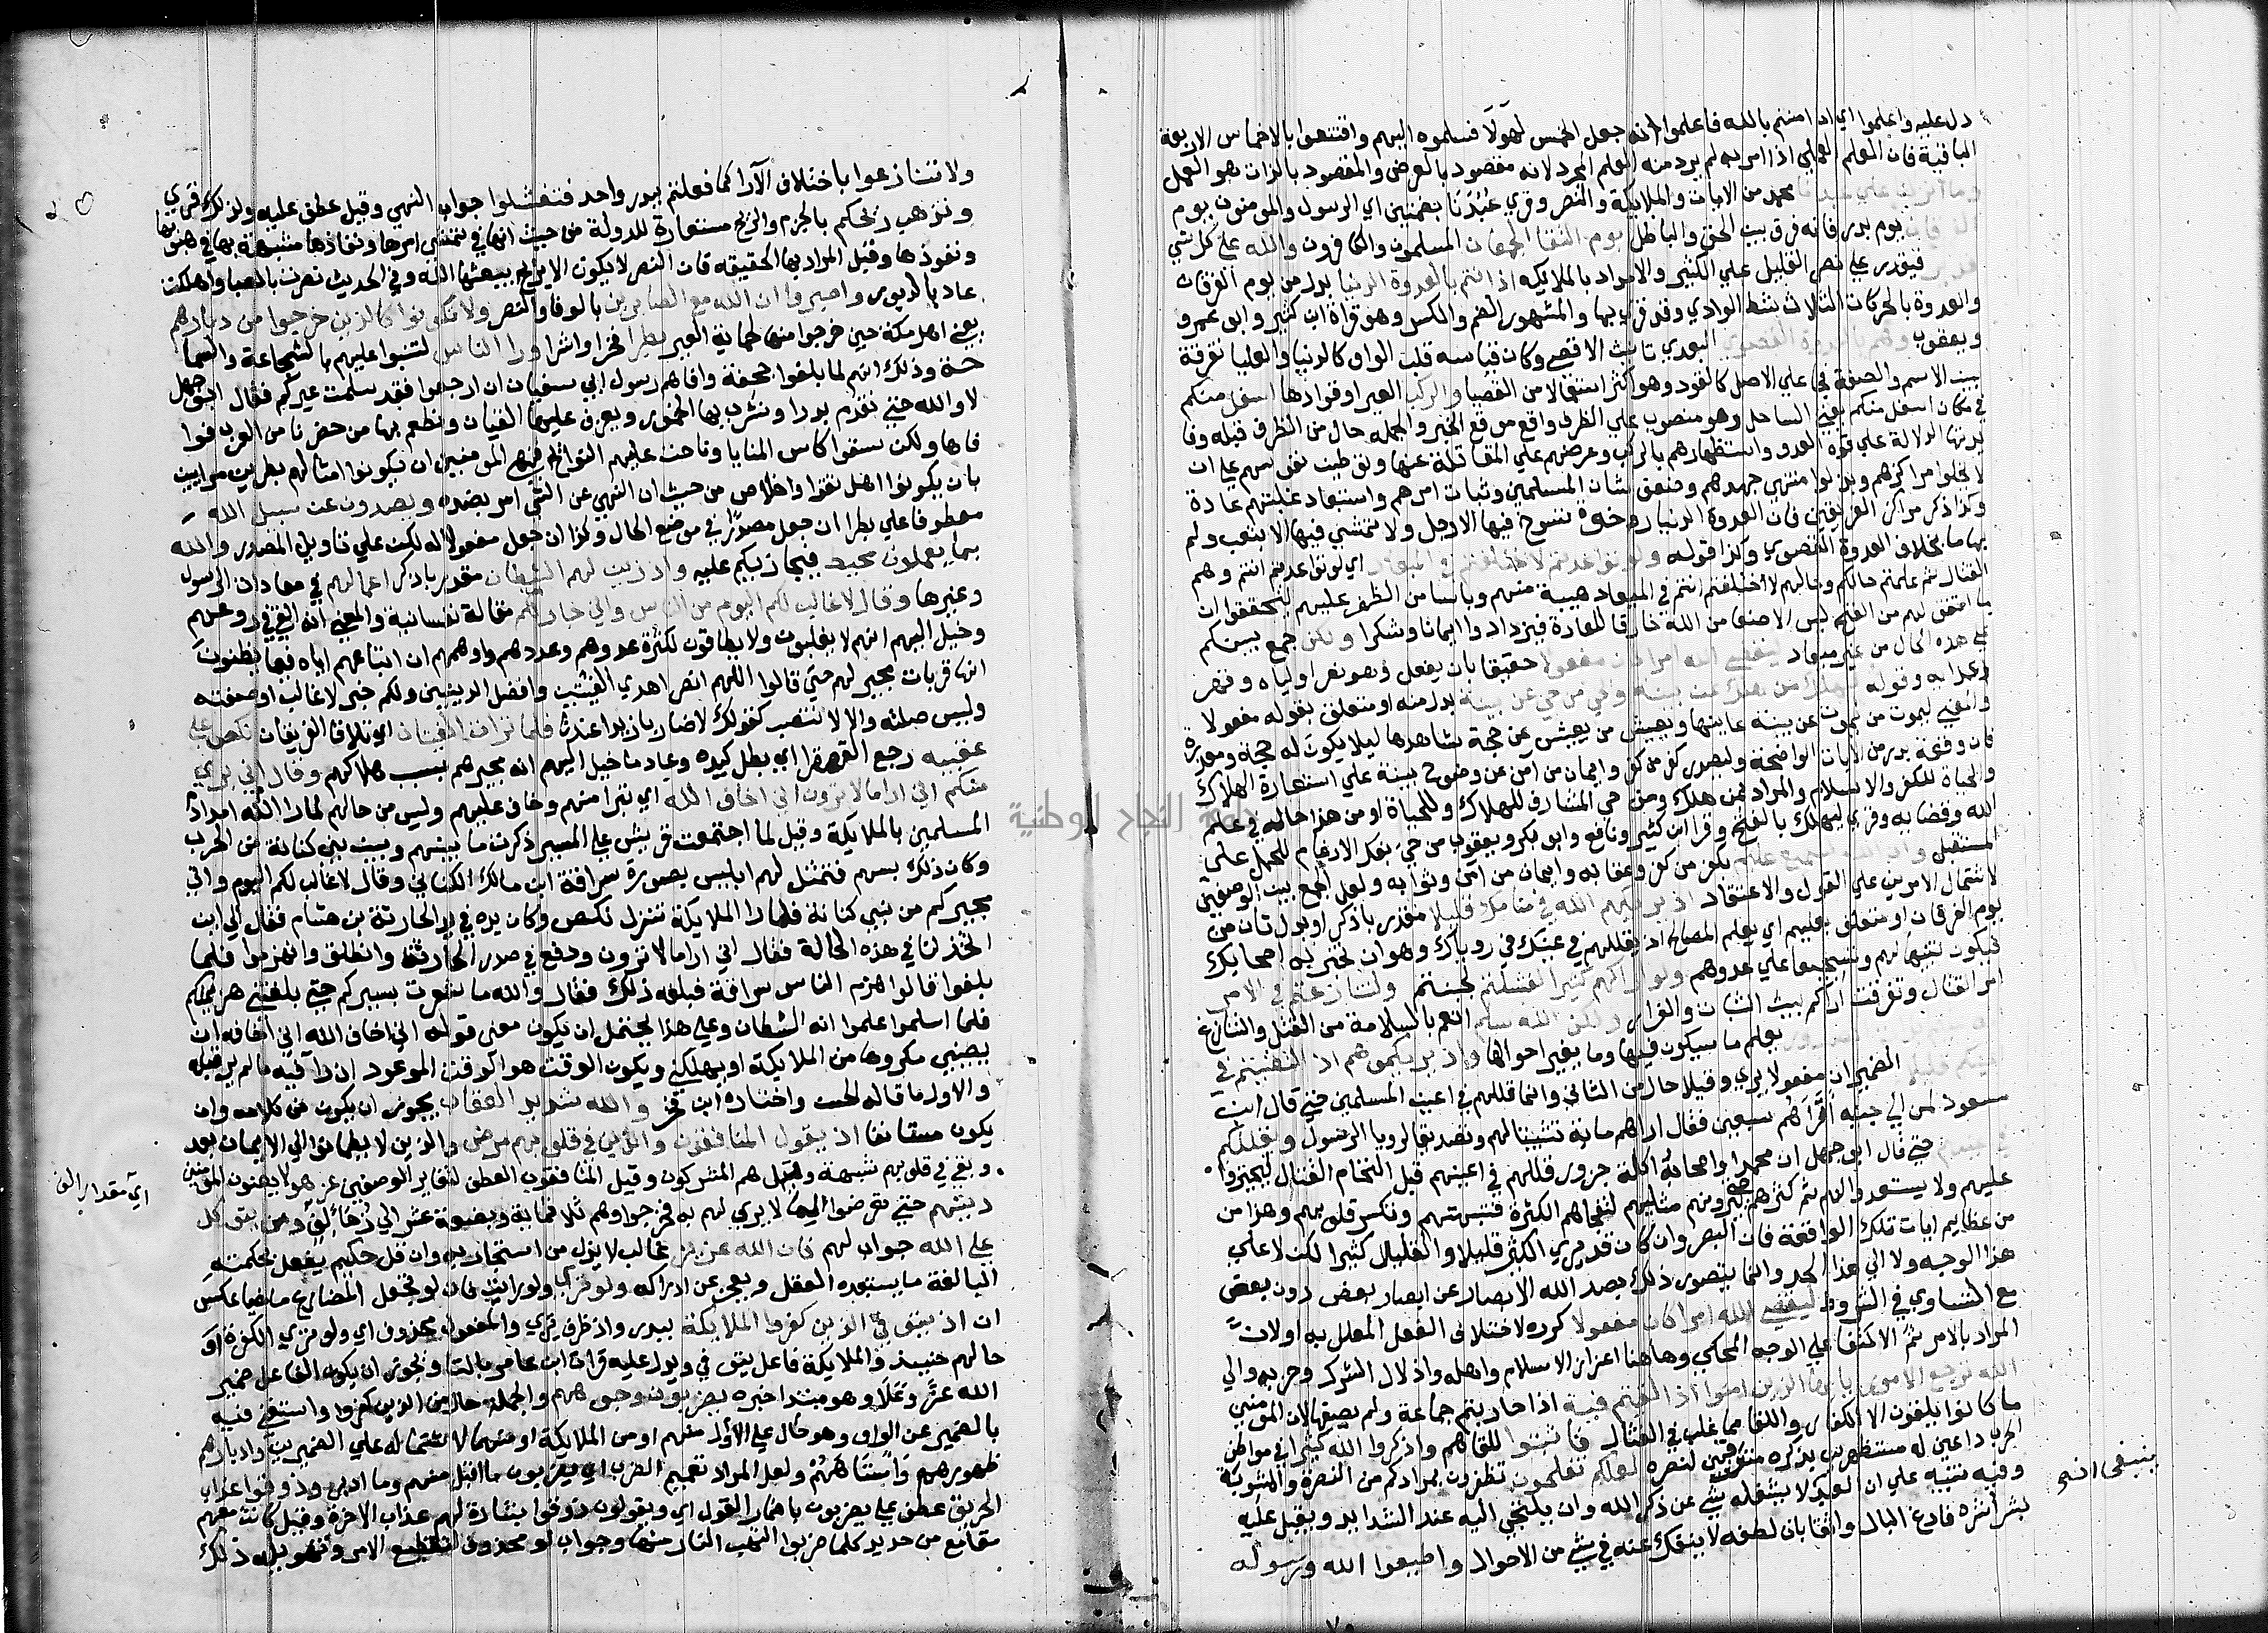 دل عليه واعلموا اي ان امنتم بالله فاعلموا انه جعل الخمس لهولا فسلموه اليهم واقتنعوا بالاخماس الاربعة
الباقية فان العلم العملي اذا امر به لم يرد منه العلم المجرد لانه مقصود بالعرض والمقصود بالذات هو العمل
وما انزلنا علي عبدنا محمد من الايات والملايكة والنصر وقري عُبُدنَا بضمتين اي الرسول والمومنون يوم
الفرقان يوم بدر فانه فرق بين الحق والباطل يوم التقا الجمعان المسلمون والكافرون والله علي كل شي
قدير فيقدر علي نصر القليل علي الكثير والامداد بالملايكه اذ انتم بالعدوة الدنيا بدل من يوم الفرقان
والعدوة بالحركات الثلاث شط الوادي وقد قري بها والمشهور الضم والكسر وهو قراة ابن كثير وابي عمرو
ويعقوب وهم بالعدوة القصوي البعدي تانيث الاقصي وكان قياسه قلب الواو كالدنيا والعليا تفرقة
بين الاسم والصفة فجا علي الاصل كالقود وهو اكثر استعمالا من القصيا والركب العير او قوادها اسفل منكم
في مكان اسفل منكم يعني الساحل وهو منصوب علي الظرف واقع موقع الخبر والجمله حال من الظرف قبله وفا
يدتها الدلالة علي قوة العدو واستظهارهم بالركب وحرصهم علي المقاتلة عنها وتوطين نفوسهم علي ان
لا يخلوا مراكزهم ويبذلوا منتهي جهدهم وضعف شان المسلمين وثبات امرهم واستبعاد غلبتهم عادة
وكذا ذكر مراكز الفريقين فان العدوة الدنيا رخوة تسوخ فيها الارجل ولا يمشي فيها الا بتعب ولم
بها ما بخلاف العدوة القصوي وكذا قوله ولو تواعدتم لاختلفتم في الميعاد اي لو تواعدتم انتم وهم
القتال ثم علمتم حالكم وحالهم لاختلفتم انتم في الميعاد هيبة منهم وياسا من الظفر عليهم ليتحققوا ان
ما اتفق لهم من الفتح ليس الا صنعا من الله خارقا للعادة فيزدادوا ايمانا وشكرا ولكن جمع بينكم
علي هذه الحال من غير ميعاد ليقضي الله امرا كان مفعولا حقيقا بان يفعل وهو نصر اوليايه وقهر
اعدايه وقوله ليهلك من هلك عن بينة ويحيي من حي عن بينة بدل منه او متعلق بقوله مفعولا
والمعني ليموت من يموت عن بينة عاينها ويعيش من يعيش عن حجة شاهدها ليلا يكون له حجة ومعذرة
فان وقعة بدر من الايات الواضحة وليصدر كفر من كفر وايمان من آمن عن وضوح بينة علي استعارة الهلاك
والحياة للكفر والاسلام والمراد بمن هلك ومن حي المشارف للهلاك وللحياة او من هذا حاله في علم
الله وقضايه وقري ليهلك بالفتح وقرا ابن كثير ونافع وابو بكر ويعقوب من حيي بفك الادغام للحمل علي
المستقبل وان الله لسميع عليم بكفر من كفر وعقابه وايمان من امن وثوابه ولعل الجمع بين الوصفين
لاشتمال الامرين علي القول والاعتقاد اذ يريكهم الله في منامك قليلا مقدر باذكر او بدل ثان من
يوم الفرقان او متعلق بعليم اي يعلم المصالح اذ يقللهم في عينك في روياك وهو ان تخبر به اصحابك
فيكون تثبيتا لهم وتشجيعا علي عدوهم ولو اراكهم كثيرا لفشلتم لجبنتم ولتنازعتم في الامر
امر القتال وتفرقت اراكم بين الثبات والفرار ولكن الله سلم انعم بالسلامة من الفشل والتنازع
انه عليم بذات الصدور يعلم ما سيكون فيها وما يغير احوالها واذ يريكموهم اذ التقيتم في
اعينكم قليلا الضميران مفعولا يري وقليلا حال من الثاني وانما قللهم في اعين المسلمين حتي قال ابن
مسعود لمن الي جنبه اتراهم سبعين فقال اراهم ماية تثبيتا لهم وتصديقا لرويا الرسول ويقللكم
في اعينهم حتي قال ابو جهل ان محمدا واصحابه اكلة جزور قللهم في اعينهم قبل التحام القتال ليجتروا
عليهم ولا يستعدوا لهم ثم كثرهم حتي يرونهم مثليهم لتفجاهم الكثرة فتبهتهم وتكسر قلوبهم وهذا من
من عظايم ايات تلك الواقعة فان البصر وان كان قد يري الكثير قليلا والقليل كثيرا لكن لا علي
هذا الوجه ولا الي هذا الحد وانما يتصور ذلك بصد الله الابصار عن ابصار بعض دون بعض
مع التساوي في الشروط ليقضي الله امرا كان مفعولا كرره لاختلاف الفعل المعلل به او لان
المراد بالامر ثمّ الاكتفا علي الوجه المحكي وهاهنا اعزاز الاسلام واهله واذلال الشرك وحزبه والي
الله ترجع الامور يا ايها الذين امنوا اذا لقيتم فية اذا حاربتم جماعة ولم يصفها لان المومنين
ما كانوا يلقون الا الكفار واللقا مما غلب في القتال فاثبتوا للقاهم واذكروا الله كثيرا في مواطن
الحرب داعين له مستظهرين بذكره مترقبين لنصره لعلكم تفلحون تظفرون بمرادكم من النصرة والمثوبة
وفيه تنبيه علي ان العبد لا يشغله شي عن ذكر الله وان يلتجي اليه عند الشدايد ويقبل عليه
بشراشره فارغ البال واثقا بان لطفه لا ينفك عنه في شي من الاحوال واطيعوا الله ورسوله
ولا تنازعوا باختلاف الآرا كما فعلتم ببدر واحد فتفشلوا جواب النهي وقيل عطف عليه ولذلك قري
وتذهب ريحكم بالجزم والريح مستعارة للدولة من حيث انها في تمشي امرها ونفاذها مشبهة بها في هبوبها
ونفوذها وقيل المراد بها الحقيقه فان النصر لا يكون الا بريح يبعثها الله وفي الحديث نصرت بالصبا واهلكت
عاد بالدبور واصبروا ان الله مع الصابرين بالوفا والنصر ولا تكونوا كالذين خرجوا من ديارهم
يعني اهل مكة حين خرجوا منها لحماية العير بطرا فخرا واشرا ورا الناس لتثنوا عليهم بالشجاعة والسما
حة وذلك انهم لما بلغوا جحفة وافاهم رسول ابي سفيان ان ارجعوا فقد سلمت عيركم فقال ابو جهل
لا والله حتي نقدم بدرا ونشرب بها الخمور ويعزف علينا القيان ونطعم بها من حضرنا من العرب فوا
فاها ولكن سقوا كاس المنايا وناحت عليهم النوايح فنهي المومنين ان يكونوا امثالهم بطرين مرايين
بان يكونوا اهل تقوا واخلاص من حيث ان النهي عن الشي امر بضده ويصدون عن سبيل الله
معطوفا علي بطرا ان جعل مصدرا في موضع الحال وكذا ان جعل مفعولا له لكن علي تاويل المصدر والله
بما يعملون محيط فيجازيكم عليه واذ زين لهم الشيطان مقدر باذكر اعمالهم في معاداة الرسول
وغيرها وقال لا غالب لكم اليوم من الناس واني جار لكم مقالة نفسانية والمعني انه القي في روعهم
وخيل اليهم انهم لا يغلبون ولا يطاقون لكثرة عددهم وعددهم واوهمهم ان اتباعهم اياه فيما يظنون
انها قربات مجير لهم حتي قالوا اللهم انصر اهدي الفيتين وافضل الدينين ولكم خبر لا غالب او صفته
وليس صلته والا لانتصب كقولك لا ضاربا زيدا عندنا فلما ترات الفيتان اي تلاقا الفريقان نكص علي
عقبيه رجع القهقرا اي بطل كيده وعاد ما خيل اليهم انه مجيرهم سبب هلاكهم وقال اني بري
منكم اني ارا ما لا ترون اني اخاف الله اي تبرا منهم وخاف عليهم وليس من حالهم لما را الله امداد
المسلمين بالملايكة وقيل لما اجتمعت قريش علي المسير ذكرت ما بينهم وبين بني كنانة من الحرب
وكان ذلك يسهم فتمثل لهم ابليس بصورة سراقة ابن مالك الكناني وقال لا غالب لكم اليوم واني
مجيركم من بني كنانة فلما را الملايكة تنزل نكص وكان يده في يد الحارثة بن هشام فقال الي اين
اتخذلنا في هذه الحالة فقال اني ارا ما لا ترون ودفع في صدر الحارثة وانطلق وانهزموا فلما
بلغوا قالوا هزم الناس سراقة فبلغه ذلك فقال والله ما شعرت بمسيركم حتي بلغتني هزيمتكم
فلما اسلموا علموا انه الشيطان وعلي هذا يحتمل ان يكون معني قوله اني اخاف الله اني اخافه ان
يصيبني مكروها من الملايكة او يهلكني ويكون الوقت هو الوقت الموعود اذ را فيه ما لم ير قبله
والاول ما قاله الحسن واختاره ابن بحر والله شديد العقاب يجوز ان يكون من كلامه وان
يكون مستانفا اذ يقول المنافقون والذين في قلوبهم مرض والذين لا يطمانوا الي الايمان بعد
وبقي في قلوبهم شبهة وقيل هم المشركون وقيل المنافقون العطف لتغاير الوصفين غر هولا يعنون المومنين
دينهم حتي تعرضوا لما لا يدي لهم به فخرجوا وهم ثلاثماية وبضعة عشر الي زها الف ومن يتوكل
علي الله جواب لهم فان الله عزيز غالب لا يذل من استجار به وان قل حكيم يفعل بحكمته
البالغة ما يستبعده العقل ويعجز عن ادراكه ولو تري ولو رايت فان لو تجعل المضارع ماضيا عكس
ان اذ يتوفي الذين كفروا الملايكة ببدر واذ ظرف تري والمفعول محذوف اي ولو تري الكفرة او
حالهم حينيذ والملايكة فاعل يتوفي ويدل عليه قراة ابن عامر بالتا ويجوز ان يكون الفاعل ضمير
الله عزّ وعلَا وهو مبتدا خبره يضربون وجوههم والجملة حال من الذين كفروا واستغني فيه
بالضمير عن الواو وهو حال علي الاول منهم او من الملايكة او منهما لاشتماله علي الضميرين وادبارهم
ظهورهم وَاستَاهَهُمْ ولعل المراد تعميم الضرب اي يضربون ما اقبل منهم وما ادبر وذوقوا عذاب
الحريق عطف علي يضربون باضمار القول اي ويقولون ذوقوا بشارة لهم بعذاب الاخرة وقيل كانت معهم
مقامع من حديد كلما ضربوا التهب النار منها وجواب لو محذوف لتفظيع الامر وتهويله ذلك
اي مقدار الف
جامعة النجاح الوطنية